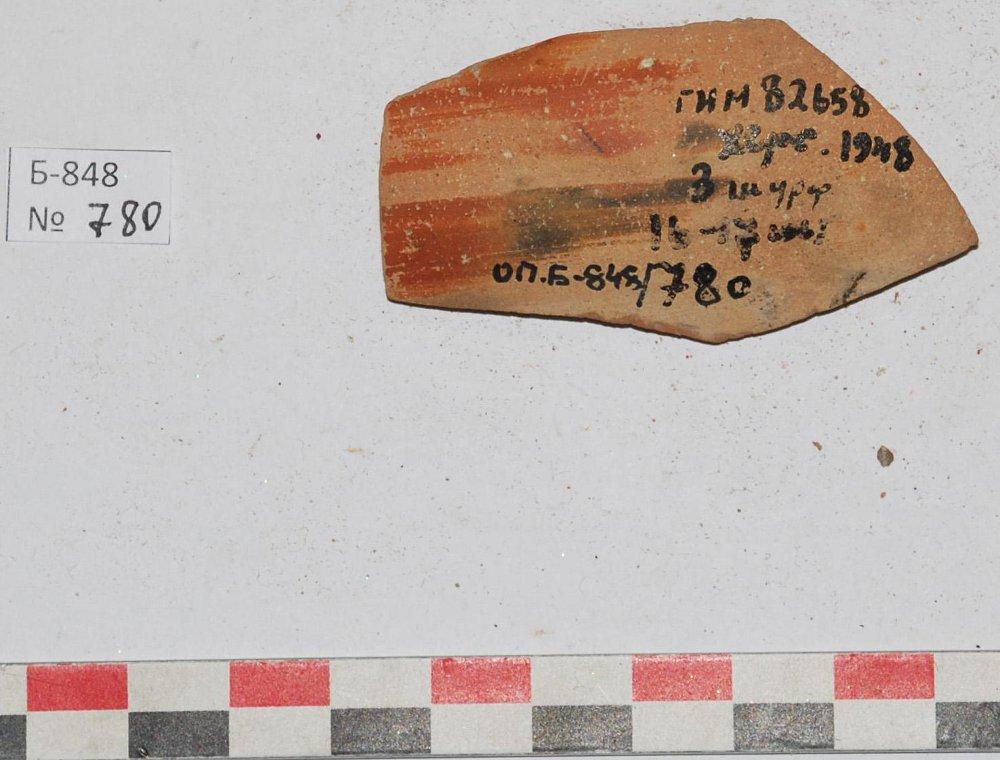 Б-848
№ 780
ГИМ 82658
Херс. 1948
3 шурф
16
оп.Б-848/780